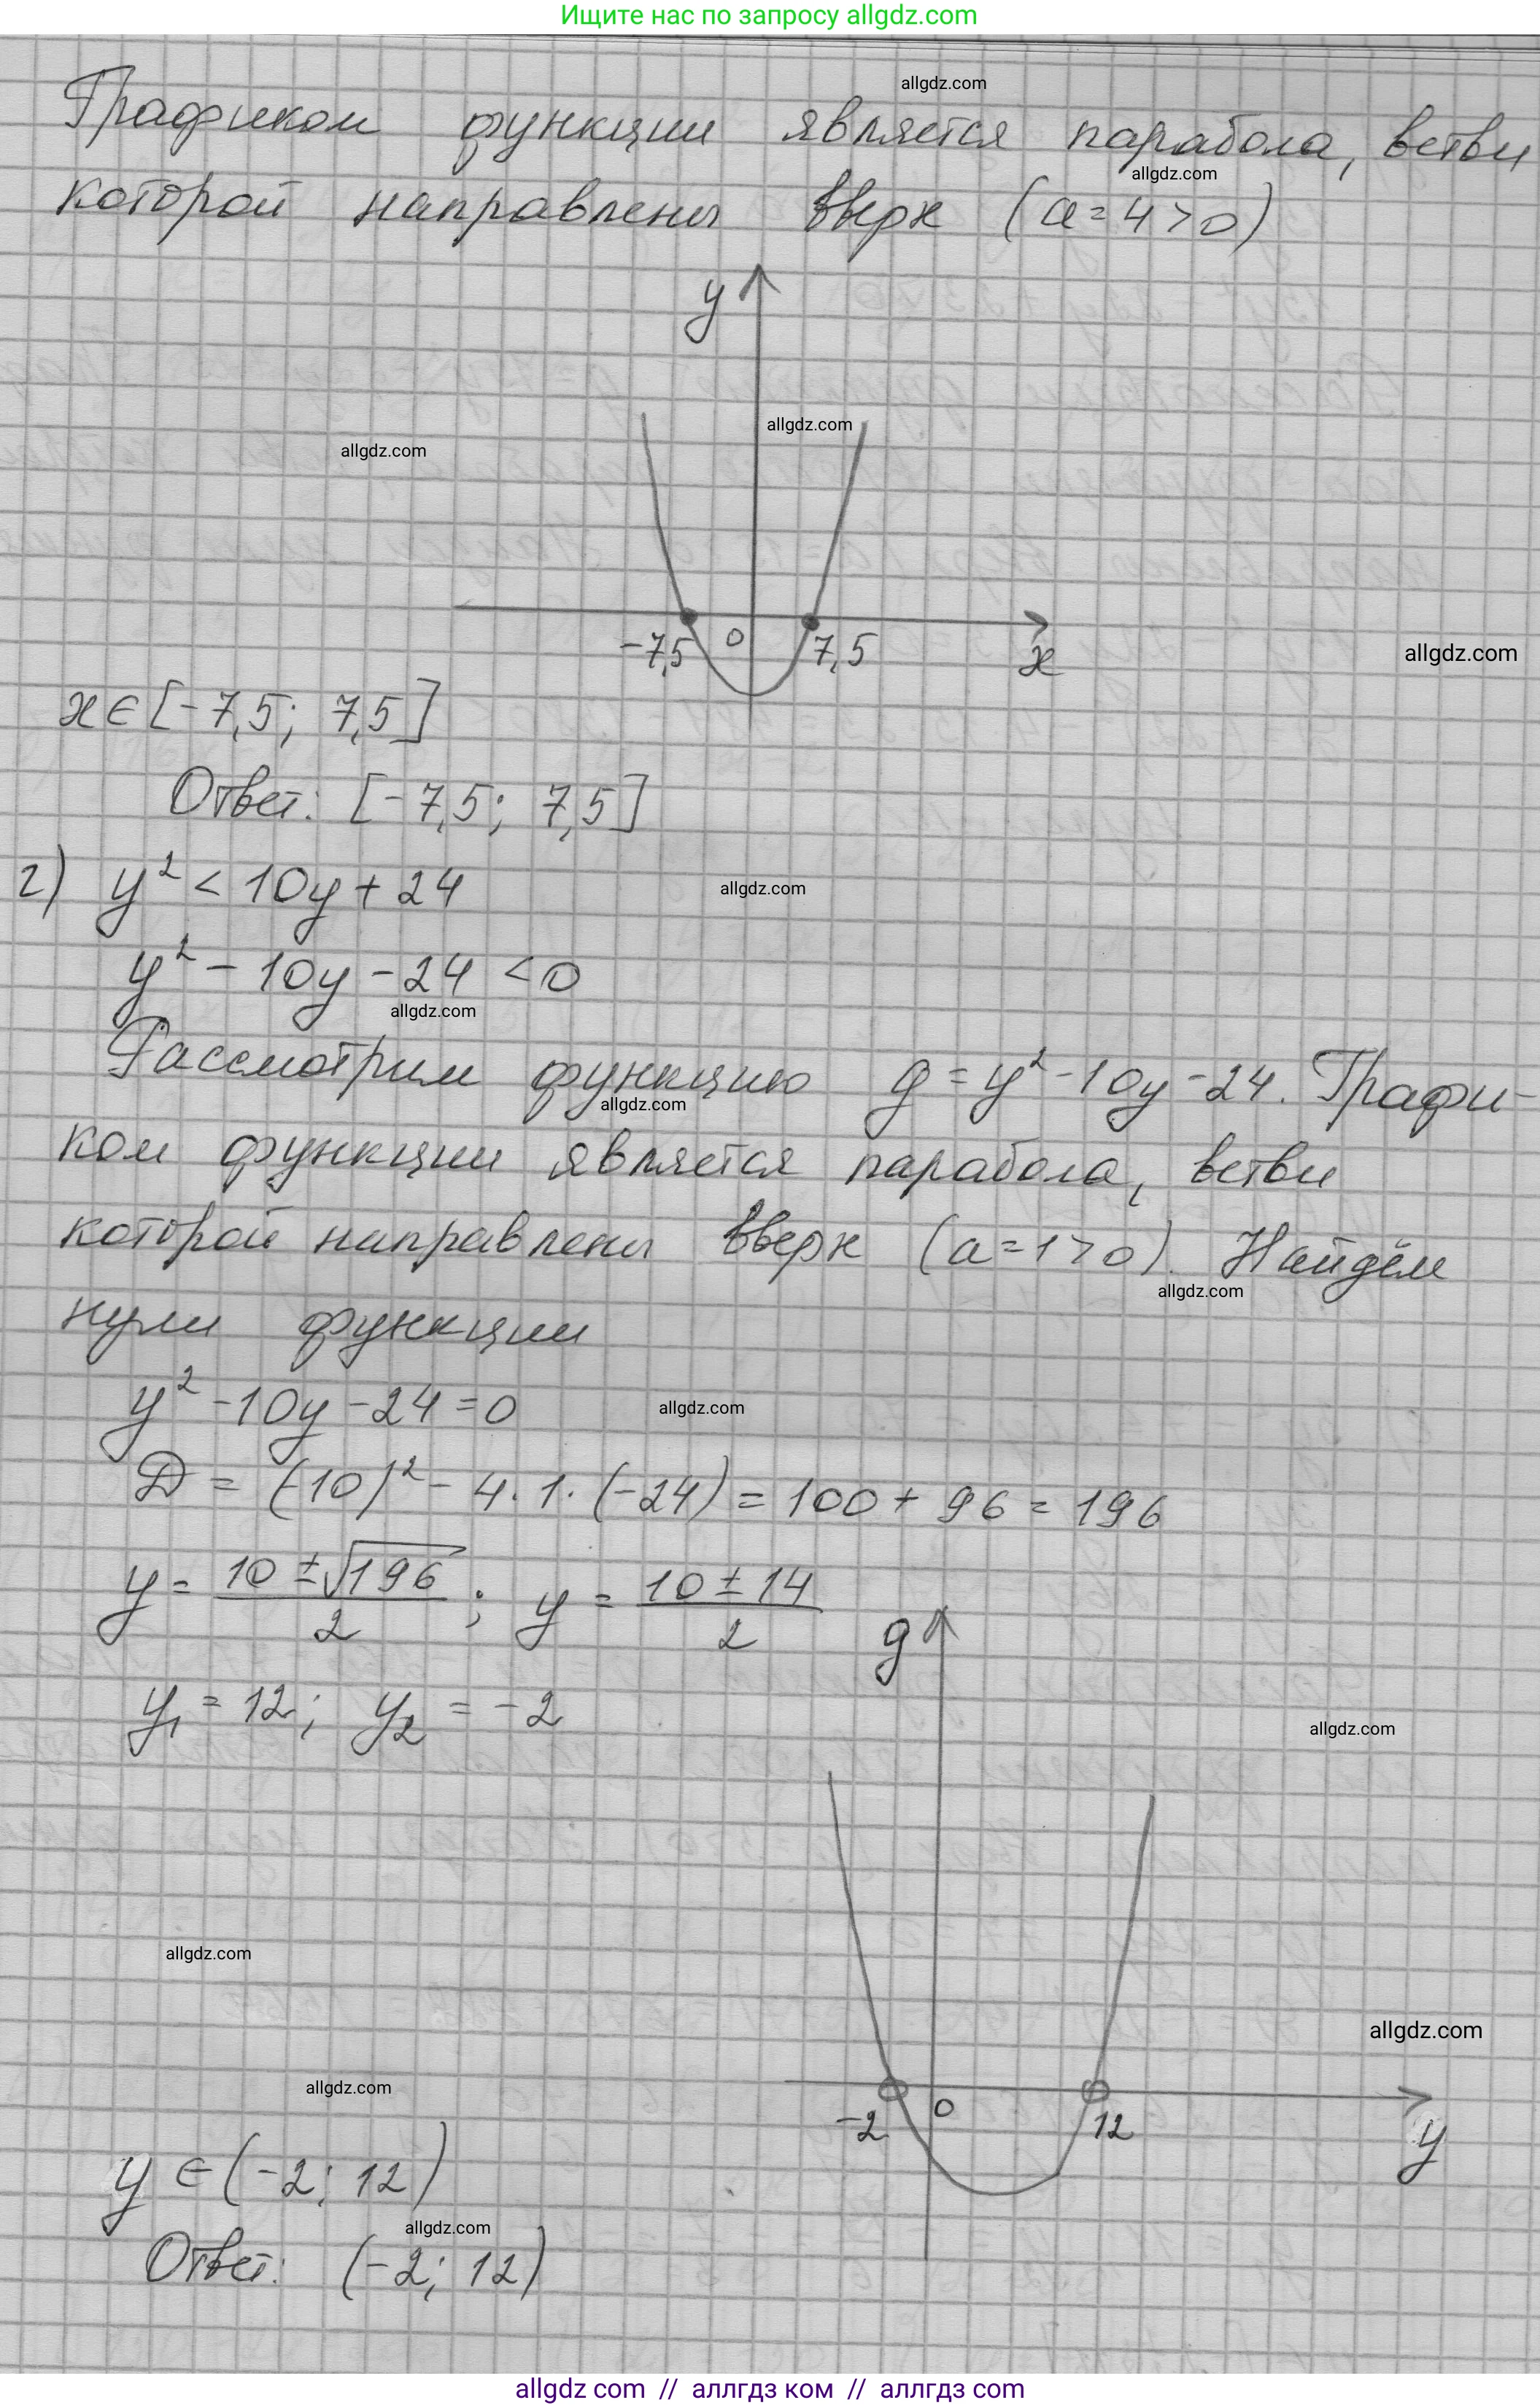 Ищите нас по запросу allgdz.com
allgdz.com
Графиком функции является парабола, ветви
allgdz.com
которой направлены вверх (a=4>0)
y
allgdz.com
allgdz.com
-7,5 0 7,5 x
allgdz.com
x∈[-7,5; 7,5]
Ответ: [-7,5; 7,5]
г) y² < 10y + 24
allgdz.com
y² - 10y - 24 < 0
allgdz.com
Рассмотрим функцию g = y² - 10y - 24. Графи-
allgdz.com
ком функции является парабола, ветви
которой направлены вверх (a=1>0). Найдём
allgdz.com
нули функции
y² - 10y - 24 = 0
allgdz.com
D = (-10)² - 4·1·(-24) = 100 + 96 = 196
y = (10 ± √196)/2 ; y = (10 ± 14)/2
g
y₁ = 12; y₂ = -2
allgdz.com
allgdz.com
allgdz.com
allgdz.com
-2 0 12 y
y ∈ (-2; 12)
allgdz.com
Ответ: (-2; 12)
allgdz com // аллгдз ком // аллгдз com